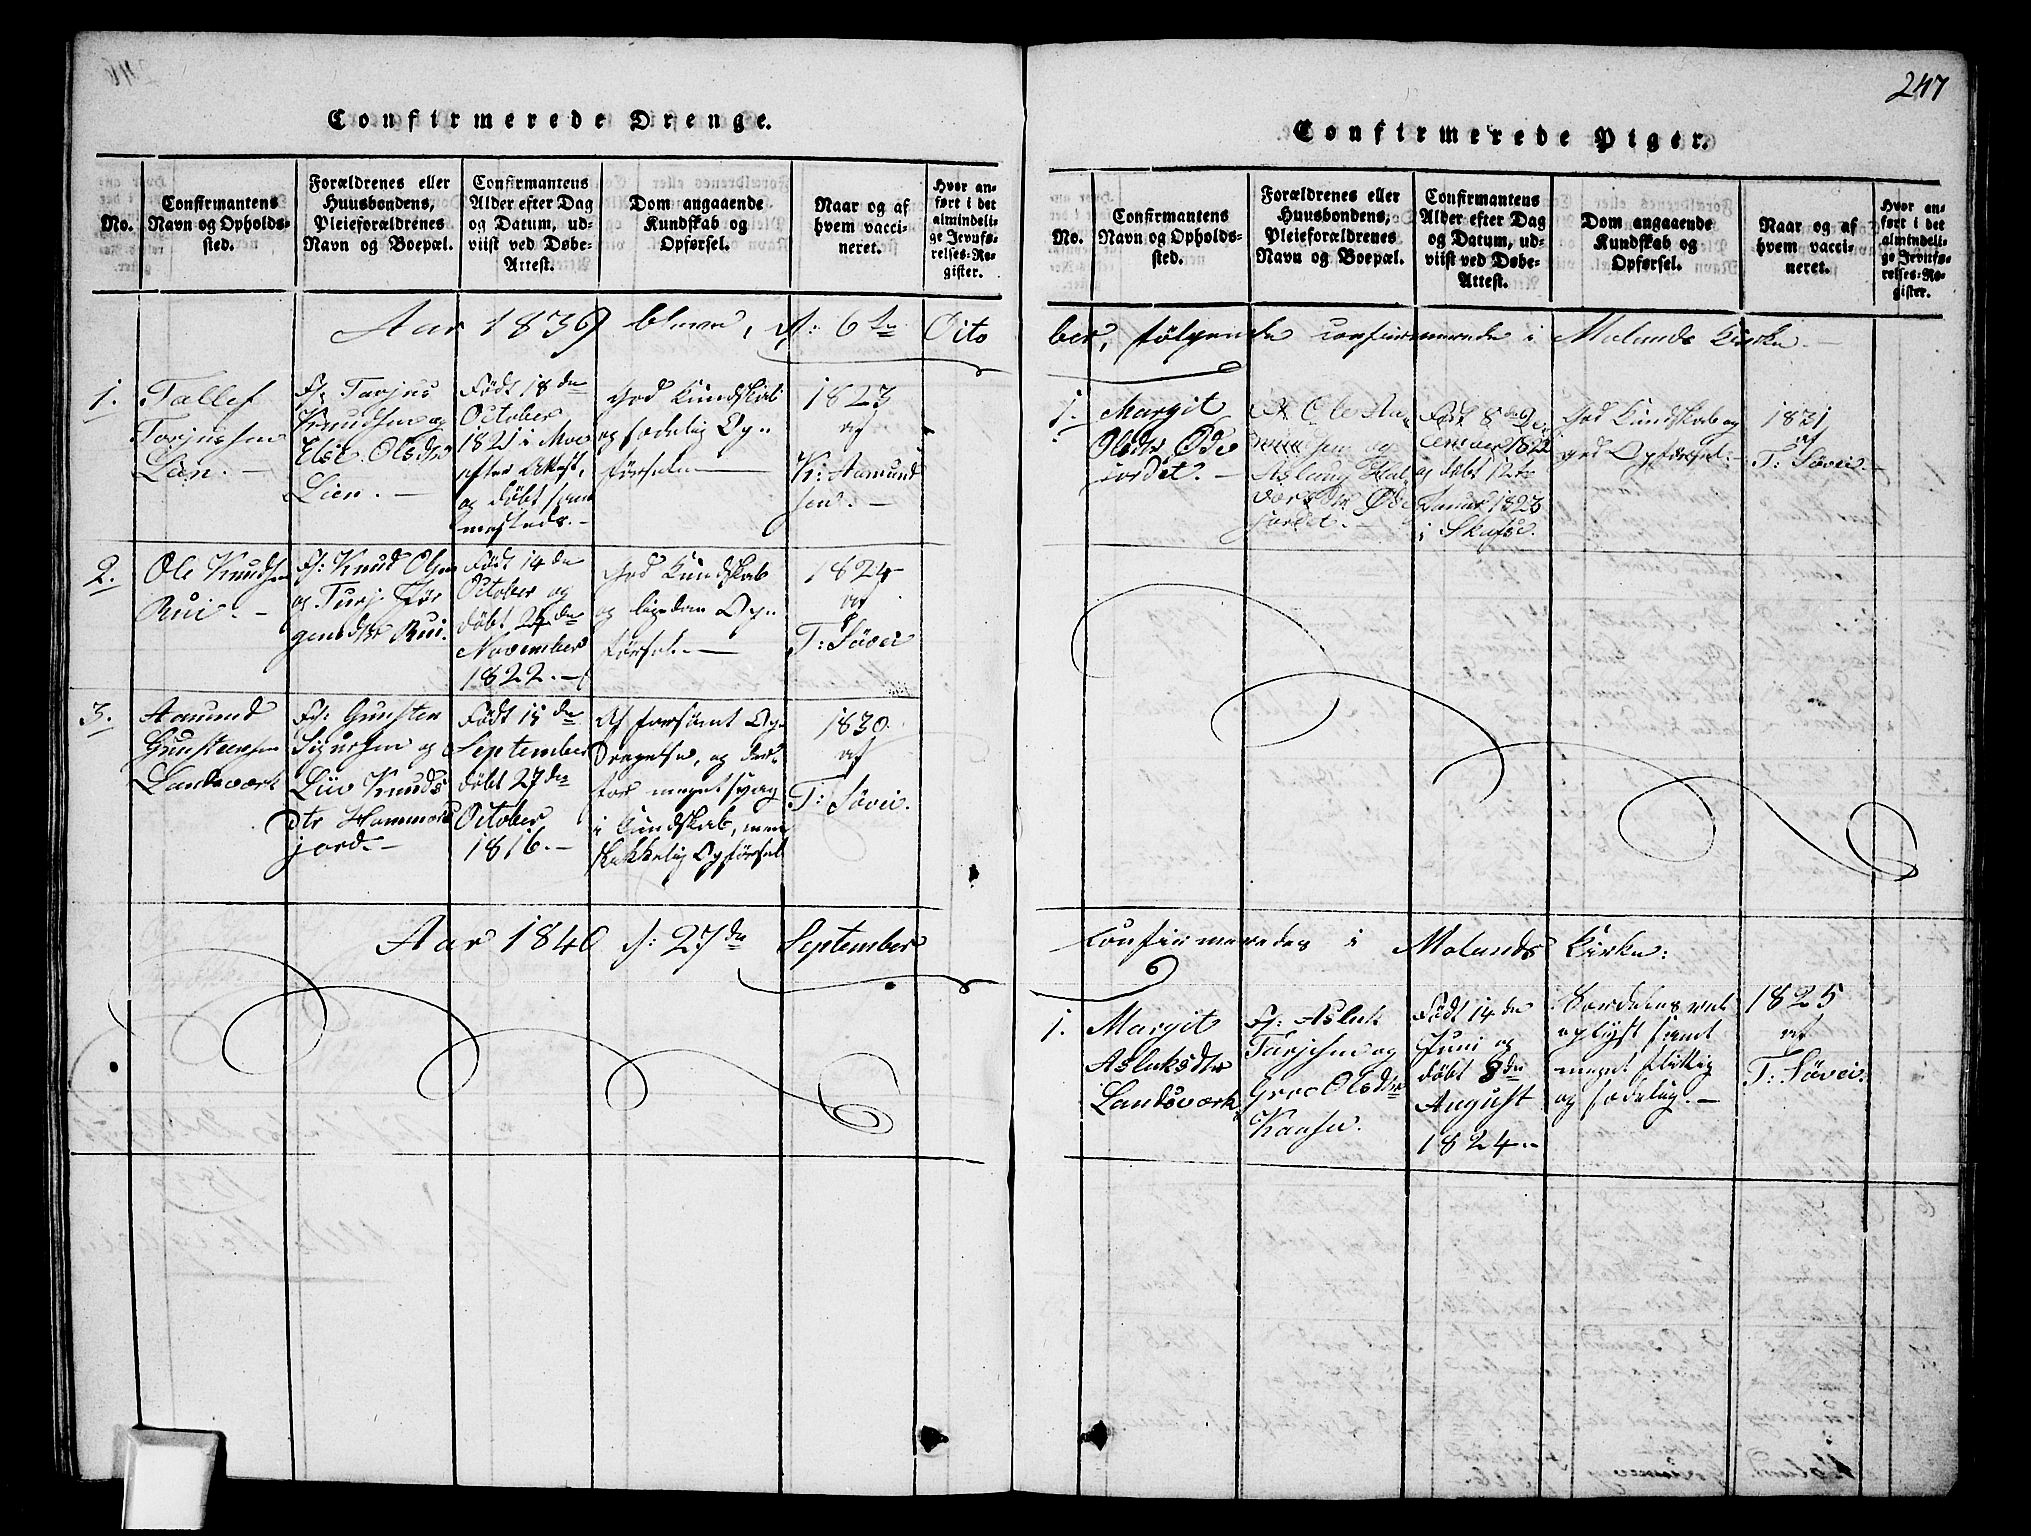 247
Confirmerede Drenge.
No.
Confirmantens
Navn og Opholds-
sted.
Forældrenes eller
Huusbondens,
Pleieforældrenes
Navn og Boepæl.
Confirmantens
Alder efter Dag
og Datum, ud-
viist ved Døbe-
Attest.
Dom angaaende
Kundskab og
Opførsel.
Naar og af
hvem vacci-
neret.
Hvor an-
ført i det
almindeli-
ge Jevnfø-
relses-Re-
gister.
Aar 1839 bleve, d: 6te Octo
1.
Tallef
Torjussen
Lien.
F: Torjus
Knudsen og
Else Olsdtr
Lien.
Født 18de
October
1821 i Moe
efter Attest,
og døbt sam
mesteds.
God Kundskab
og sædelig Op-
førsel.
1823
af
K: Aamund
sen.
2.
Ole Knudsen
Rui.
F: Knud Olsen
og Turj Jør
gensdtr Rui.
Født 14de
October og
døbt 24de
November
1822.
God Kundskab
og ligedan Op-
førsel.
1824
af
T: Søvei
3.
Aamund
Gunsteensen
Landsværk
F: Gunsten
Sigursen og
Liv Knuds
dtr Hammers
jord.
Født 15de
September
døbt 27de
October
1816.
Af forsømt Op-
dragelse, og der-
for meget svag
i Kundskab, men
skikkelig Opførsel
1830
af
T: Søvei.
Aar 1840 d: 27de September
Confirmerede Piger.
No.
Confirmantens
Navn og Opholds-
sted.
Forældrenes eller
Huusbondens,
Pleieforældrenes
Navn og Boepæl.
Confirmantens
Alder efter Dag
og Datum, ud-
viist ved Døbe-
Attest.
Dom angaaende
Kundskab og
Opførsel.
Naar og af
hvem vacci-
neret.
Hvor an-
ført i det
almindeli-
ge Jevnfø-
relses-Re-
gister.
ber, følgende confirmerede i Molands Kirke.
1.
Margit
Olsdtr Øde
jordet.
F: Ole Aa-
mundsen og
Aslaug Hal-
vorsdtr Øde
jordet.
Født 8de De-
cember 1822
og døbt 12te
Januar 1823
i Skafse.
God Kundskab og
god Opførsel.
1831
af
T: Søvei.
confirmeredes i Molands Kirke:
1.
Margit
Asluksdtr
Landsværk
F: Asluk
Tarjesen og
Groe Olsdtr
Kaasen.
Født 14de
Juni og
døbt 8de
August
1824.
Særdeles vel
oplyst samt
meget flittig
og sædelig.
1825
af
T: Søvei.